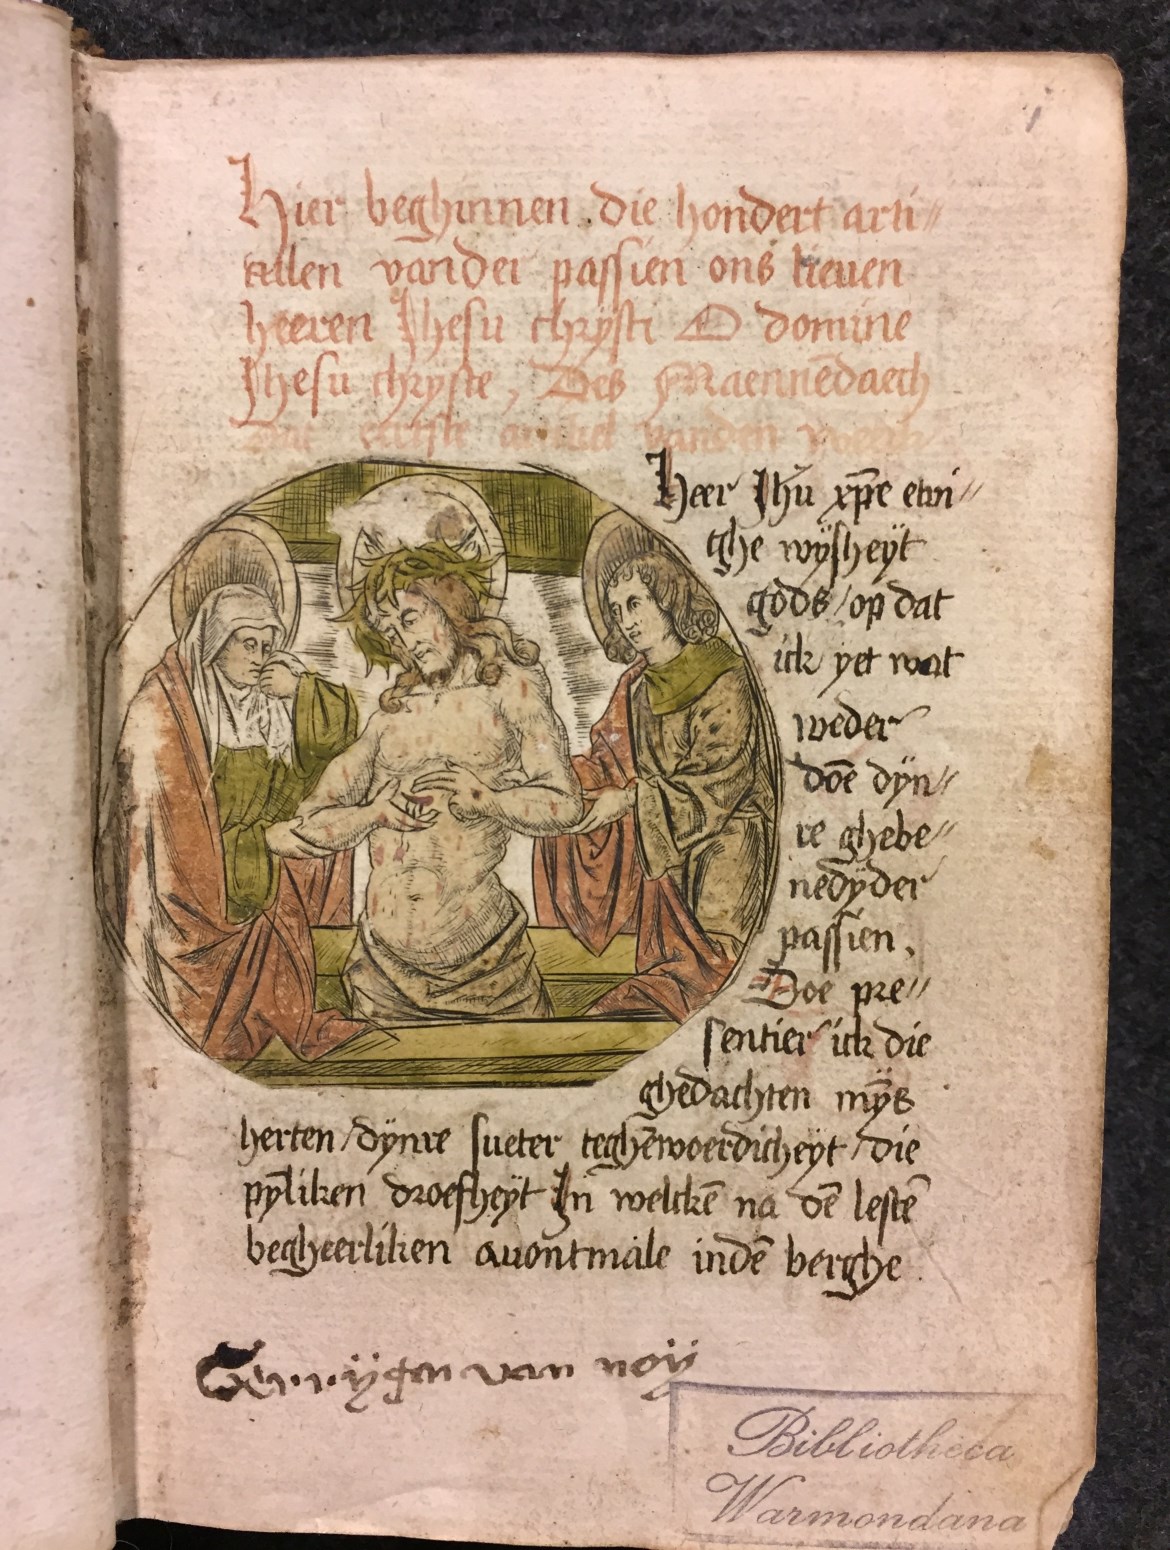 1
Hier beghinnen die hondert arti⸗
culen vander passien ons lieuen
heeren Jhesu chrÿsti O domine
Jhesu chrÿste, Des Maennēdaech
Dat eerste artikel vanden
Heer Jhū xp̄e ewi⸗
ghe wÿsheÿt
gods / op dat
ick yet wat
weder
doē dÿn⸗
re ghebe⸗
nedÿder
passien,
Soe pre⸗
sentier ick die
ghedachten mÿs
herten / dÿnre sueter teghēwoerdicheÿt / die
pÿliken droefheÿt In welckē na dē lestē
begheerliken auontmale indē berghe.
Gerrÿgen van noÿ
Bibliotheca
Warmondana